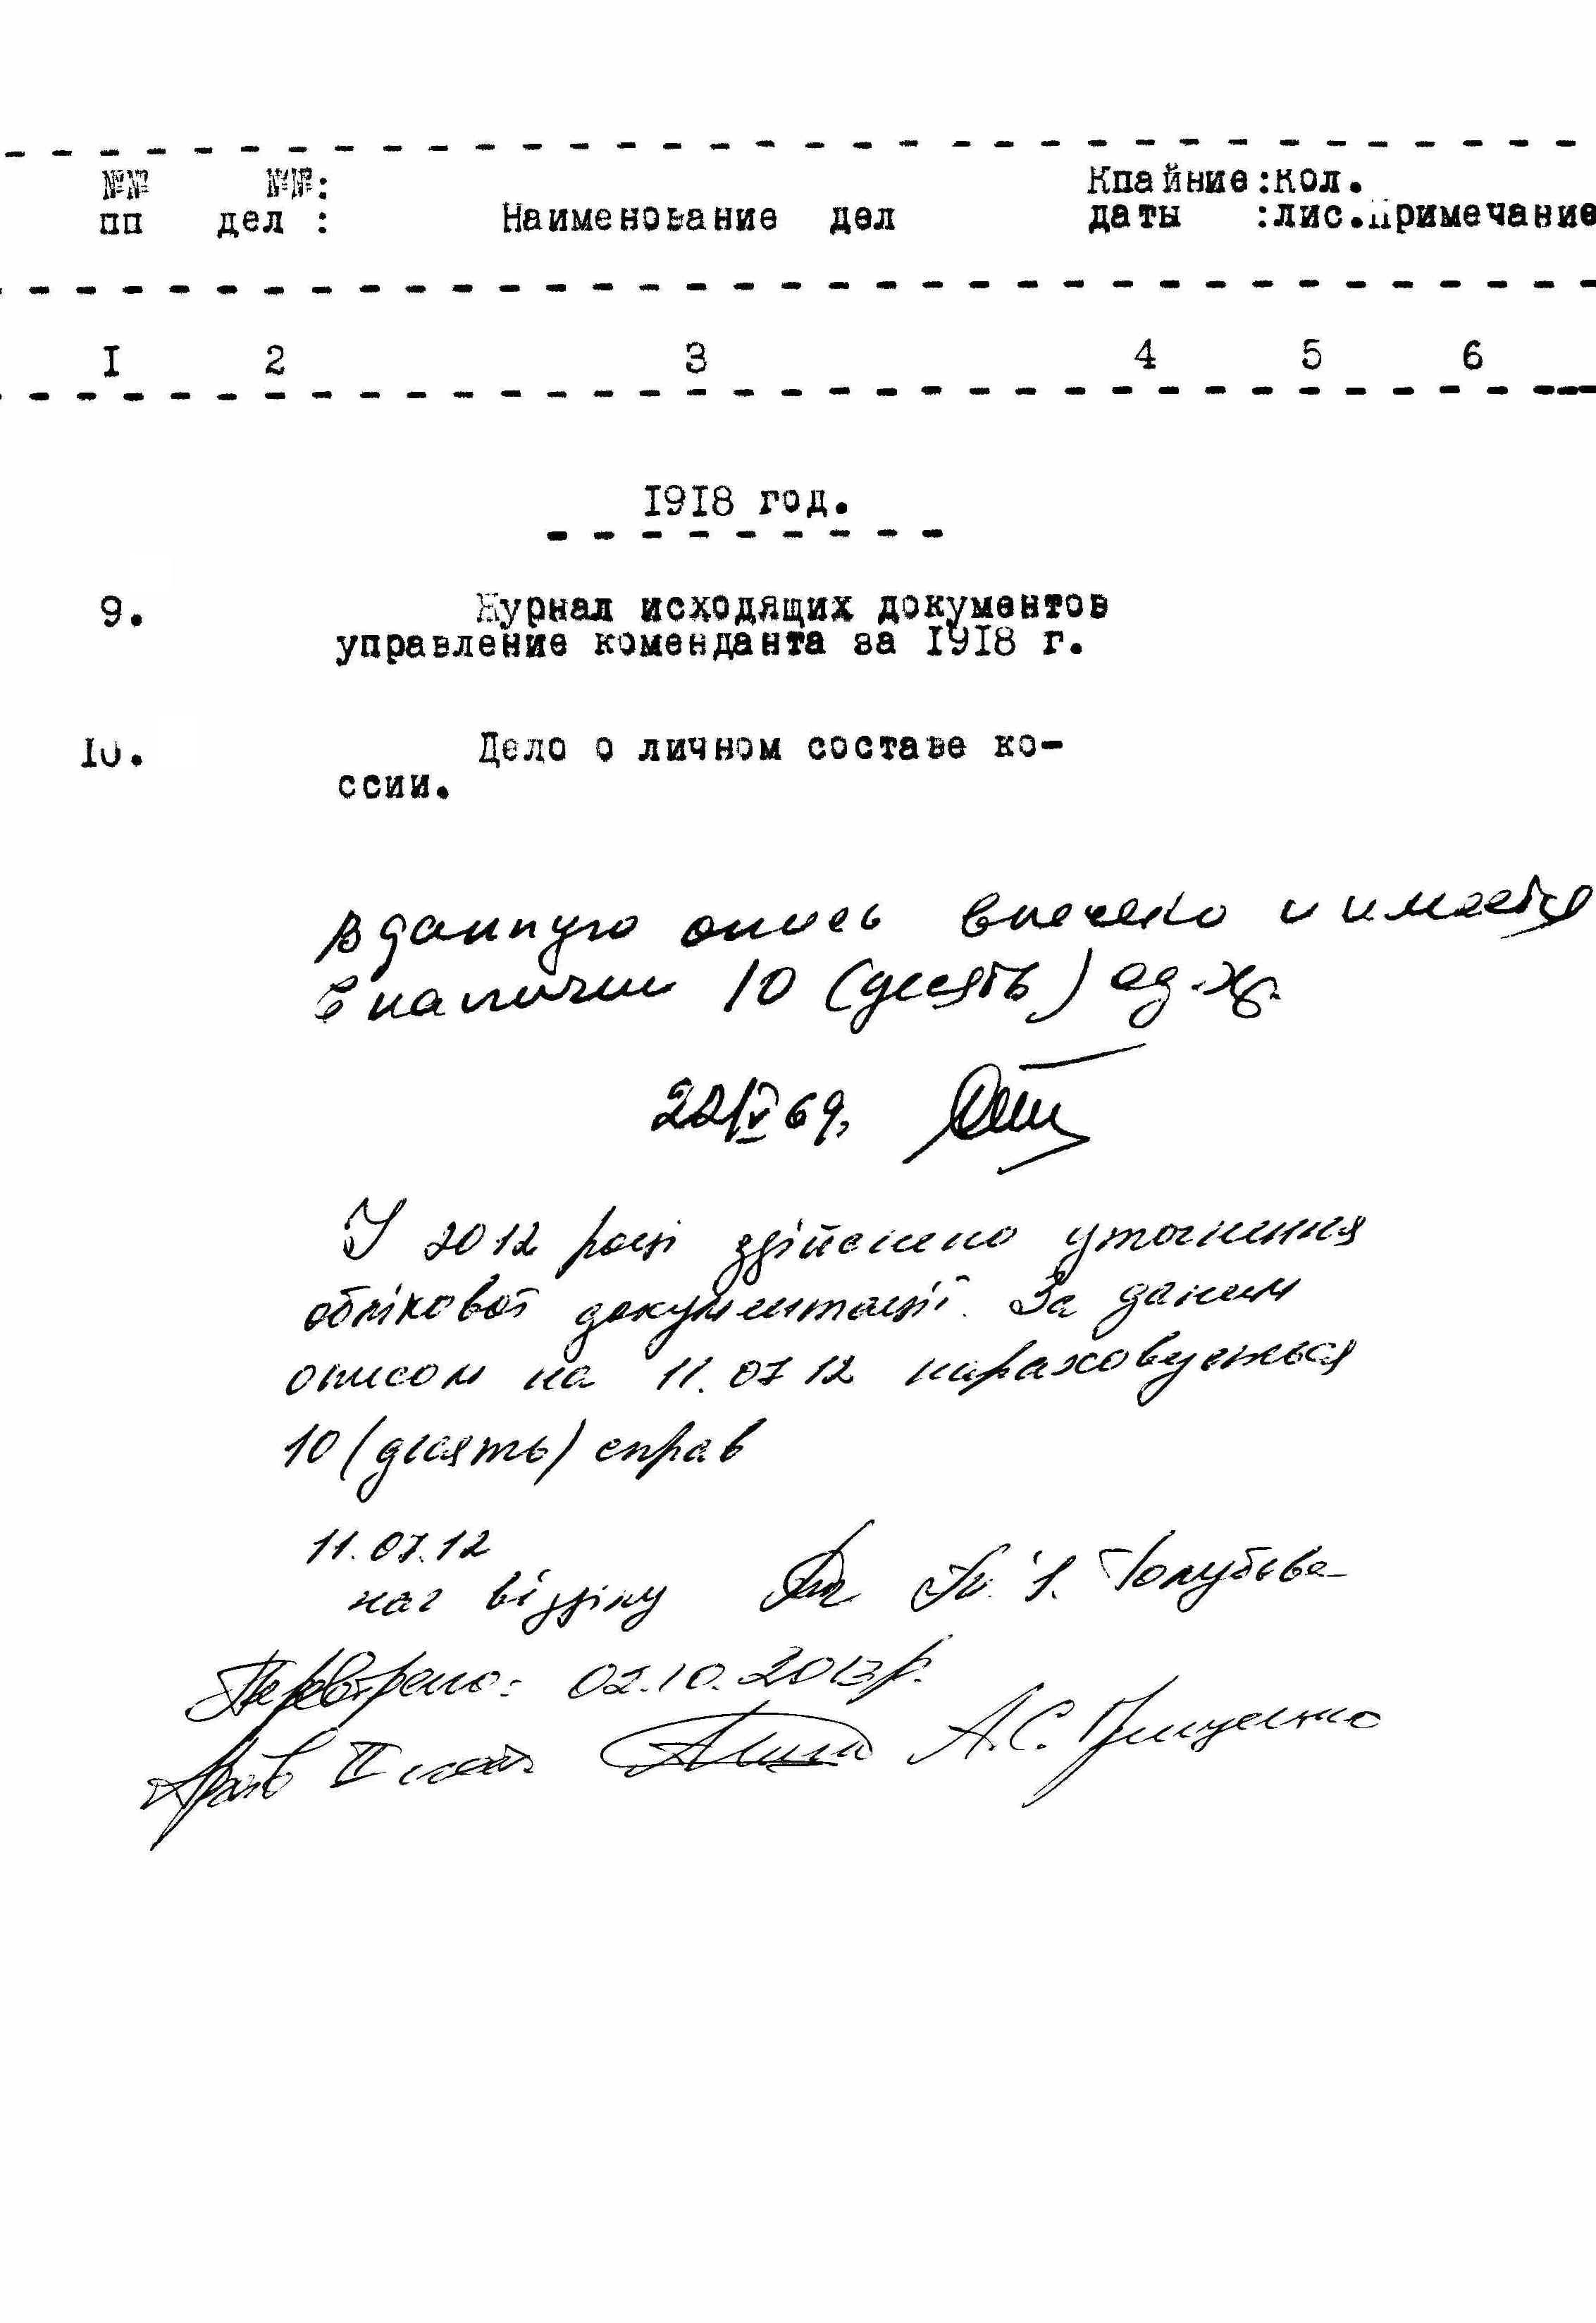 №№ №№: Кпайние:кол.
пп дел : Наименование дел даты :лис.Примечание
I 2 3 4 5 6
1918 год.
9. Журнал исходящих документов
управление коменданта за 1918 г.
10. Дело о личном составе ко-
ссии.
В данную опись внесено и имеется
в наличии 10 (десять) ед.хр.
22/V 69,
У 2012 році здійснено уточнення
облікової документації. За даним
описом на 11.07 12 нараховується
10 (десять) справ
11.07.12
нач відділу Голубєва
Перевірено: 02.10.2013р.
II А.С.